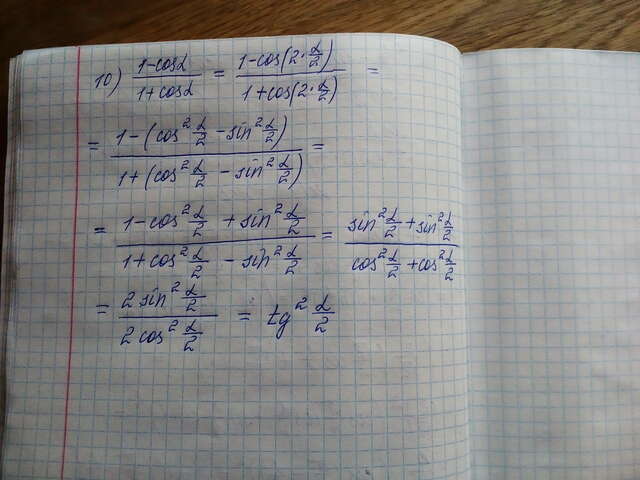 10) (1-cosα)/(1+cosα) = (1-cos(2·α/2))/(1+cos(2·α/2)) =
= (1-(cos²α/2 - sin²α/2))/(1+(cos²α/2 - sin²α/2)) =
= (1-cos²α/2 + sin²α/2)/(1+cos²α/2 - sin²α/2) = (sin²α/2 + sin²α/2)/(cos²α/2 + cos²α/2)
= (2 sin²α/2)/(2 cos²α/2) = tg²α/2